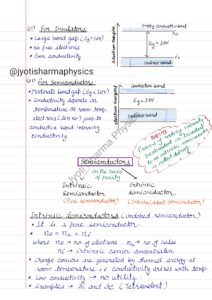 (ii) For Insulators:
• Large band gap (Eg > 3eV)
• No free electrons
• Poor conductivity
Empty conduction band
Eg > 3eV
Valence band
Electron energies
@jyotisharmaphysics
(iii) For Semiconductors:
• Moderate band gap (Eg < 3eV)
• Conductivity depends on
temperature. At room temp,
electrons jump to
conduction band improving
conductivity
conduction band
Eg < 3eV
Valence band
Electron energies
Semiconductors
on the basis
of purity
Intrinsic
Semiconductor
(Pure semiconductor)
Extrinsic
Semiconductor
Intrinsic Semiconductors (Undoped semiconductor)
• It is a pure semiconductor.
ne = nh = ni
where ne → no. of electrons, nh → no. of holes
ni → intrinsic carrier concentration
• Charge carriers are generated by thermal energy at
room temperature i.e. conductivity arises with temp.
• Low conductivity → no utility.
• Examples → Si and Ge (Tetravalent)